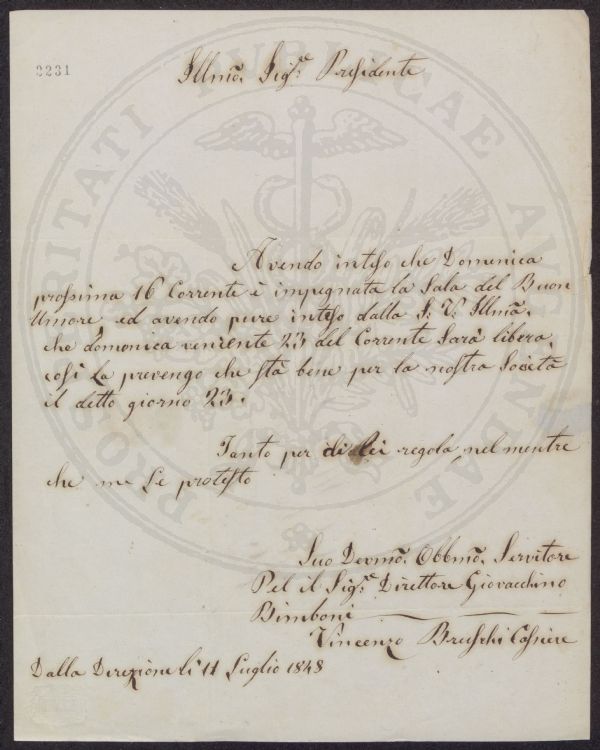 2231
Illmo. Sigre. Presidente
Avendo inteso che Domenica
prossima 16 Corrente è impegnata la Sala del Buon
Umore, ed avendo pure inteso dalla S: V: Illmã.
che domenica veniente 23 del Corrente Sarà libera,
così La prevengo che stà bene per la nostra Società
il detto giorno 23.
Tanto per di lei regola, nel mentre
che me Le protesto
Suo Devmõ. Obbmõ. Servitore
Pel il Sigre. Direttore Giovacchino
Bimboni
Vincenzo Bruschi Cassiere
Dalla Direzione li 11 Luglio 1848
PROSPERITATI PUBLICAE AUGENDAE